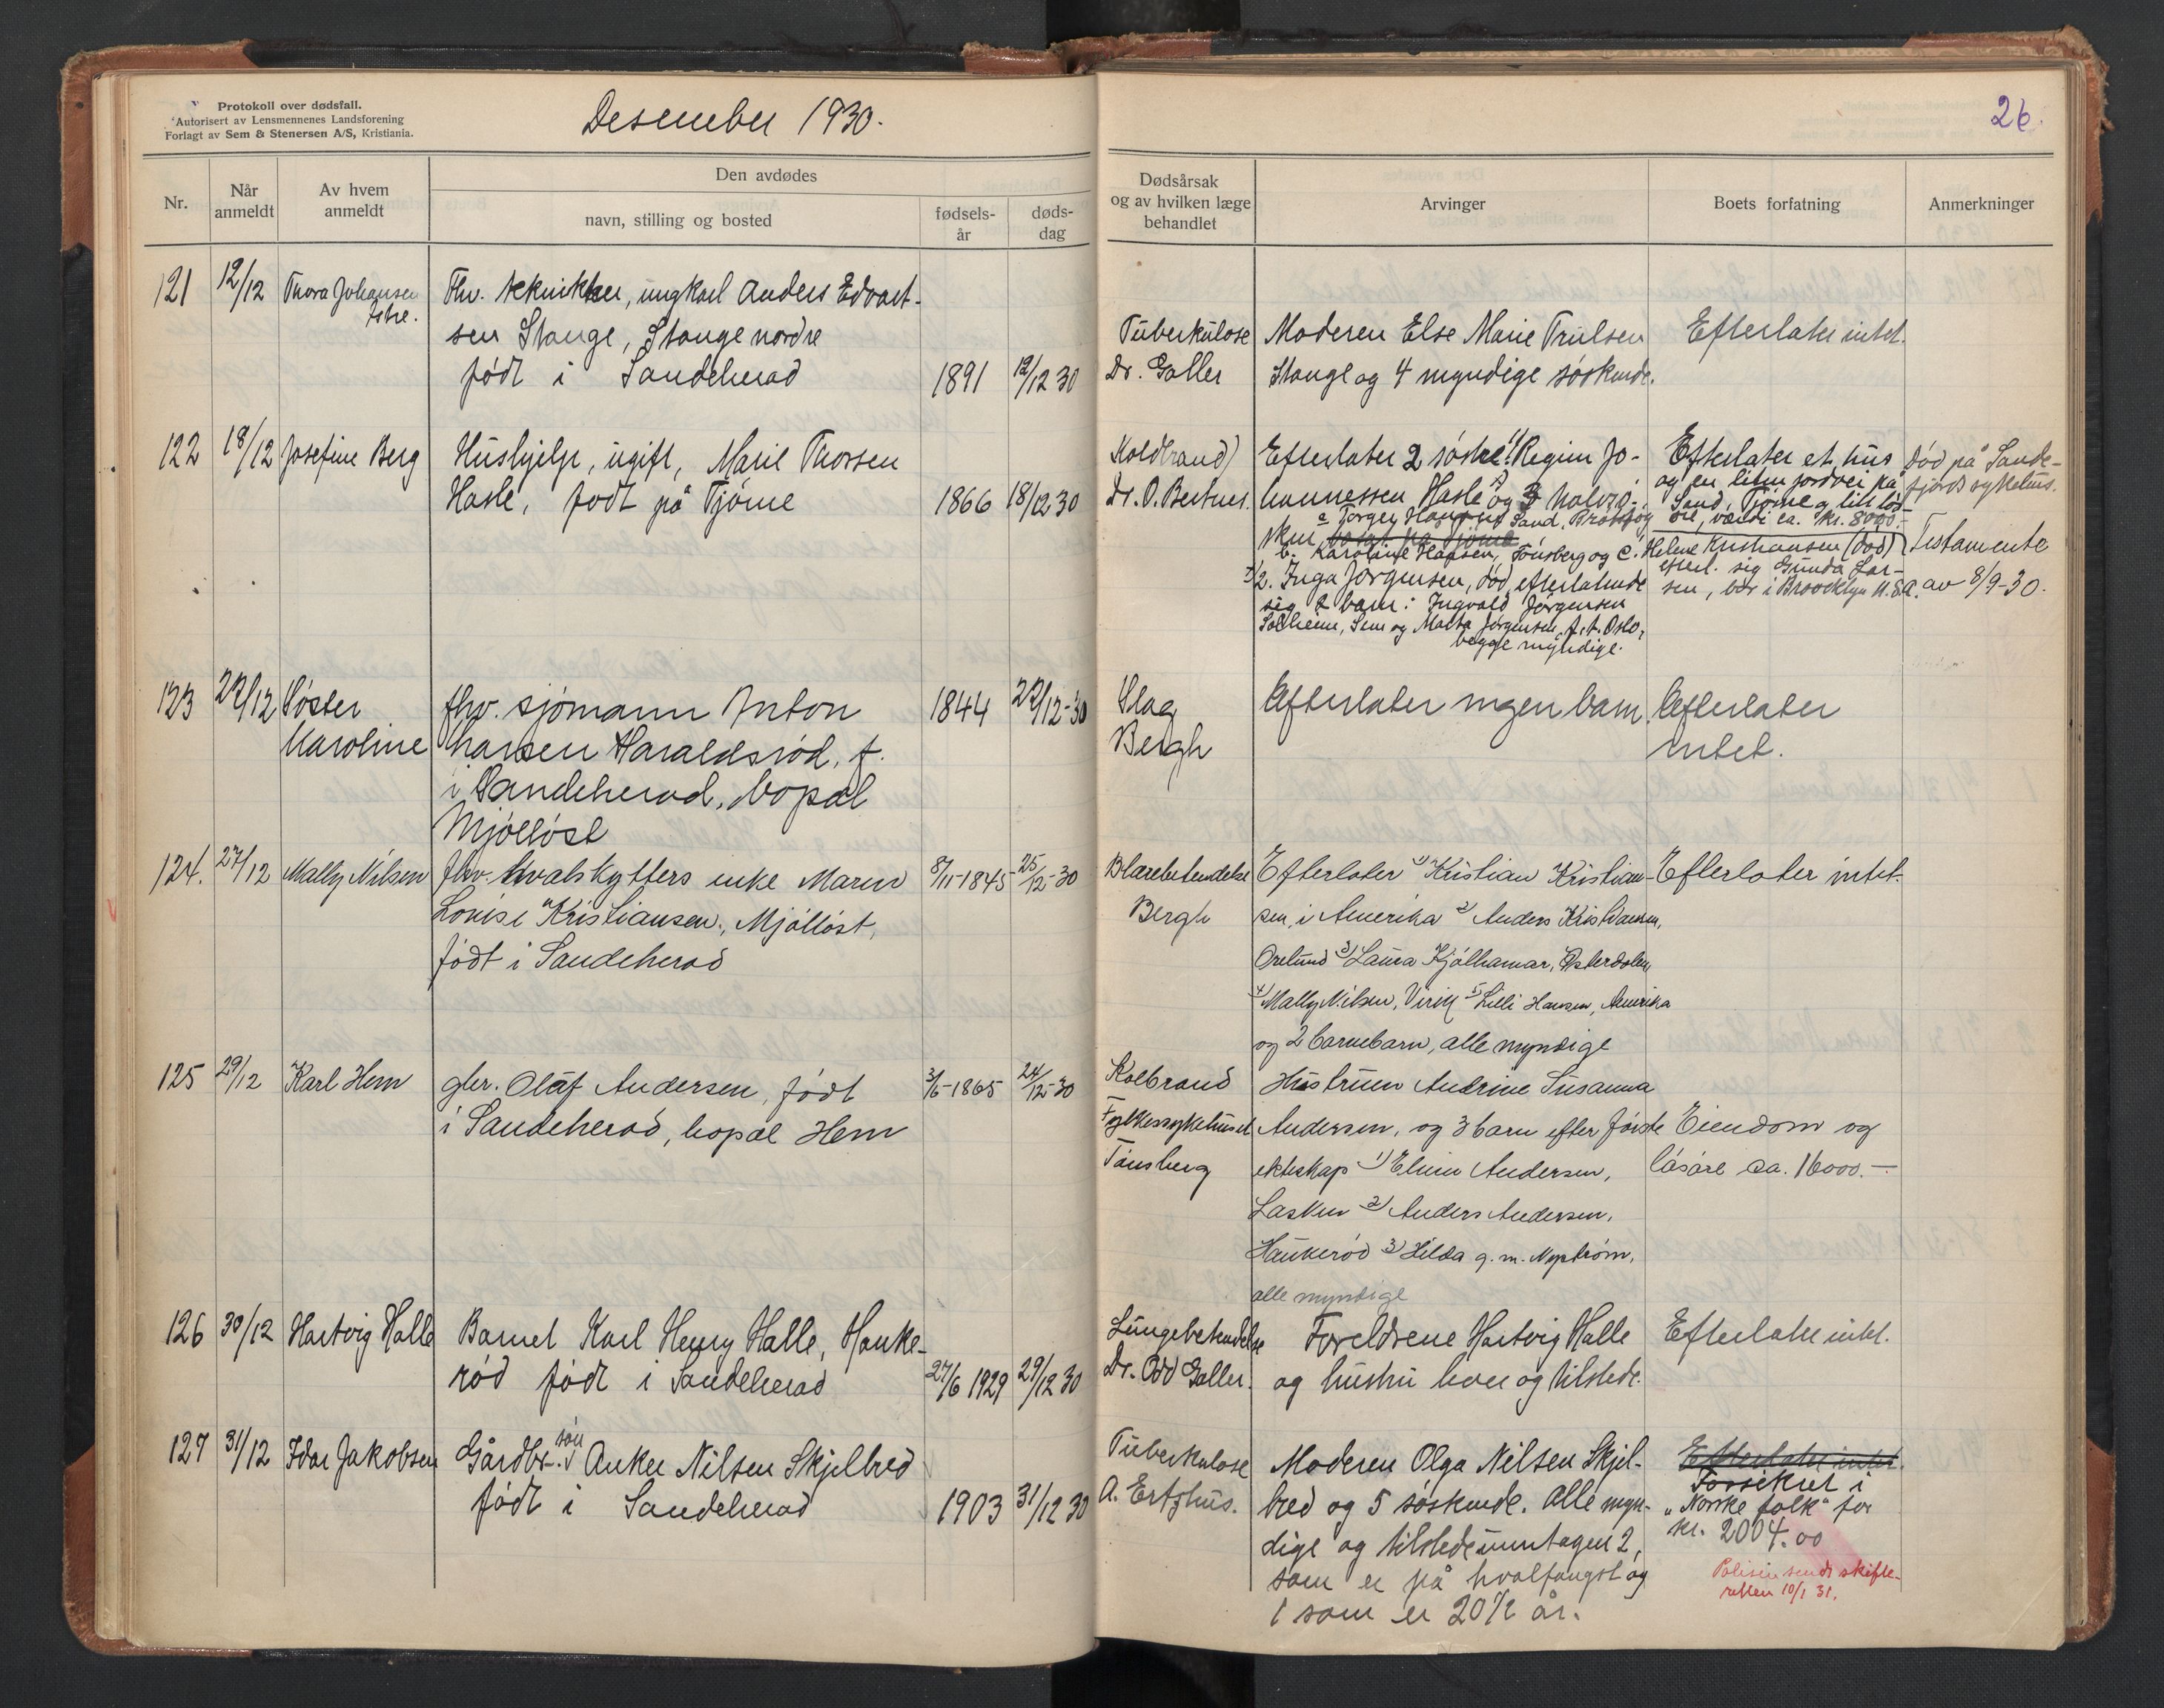 Protokoll over dødsfall.
Autorisert av Lensmennenes Landsforening
Forlagt av Sem & Stenersen A/S, Kristiania.
Desember 1930.
26.
Nr.
Når anmeldt
Av hvem anmeldt
Den avdødes
navn, stilling og bosted
fødsels-
år
døds-
dag
Dødsårsak
og av hvilken læge
behandlet
Arvinger
Boets forfatning
Anmerkninger
121 12/12 Thora Johansen
Fhv. tekniker, ungkarl Anders Edvart-
sen Stange, Stange nordre
født i Sandeherad 1891 12/12 30
Tuberkulose
Dr. Galler
Moderen Else Marie Trulsen
Stange og 4 myndige søskende.
Efterlater intet.
122 18/12 Josefine Berg
Hushjelp, ugift, Marie Thorsen
Hasle, født på Tjøme 1866 18/12 30
Koldbrand
Dr. O.
Efterlater 2 søstre: 1) Regine Jo-
hannessen Hasle og 3 halvsø-
sken
a Jørgen Hansen Sand,
b. Karoline Hansen, Tønsberg og c. Helene Kristiansen (død)
efterl. sig Gunda Lar-
sen, bor i Broocklyn U.S.A.
2. Inga Jørgensen, død, efterlatende
sig 2 barn: Ingvald Jørgensen
Solheim, Sem og Marta Jørgensen, f.t. Oslo,
begge myndige.
Efterlater et hus
og en liten jordvei på
Sand, Tjøme og litt løs-
øre, værdi ca. kr. 8000.-
Død på Sande-
fjords sykehus.
Testamente
av 8/9-30.
123 22/12 Søster
Karoline
fhv. sjømann Anton
Hansen Haraldsrød, f.
i Sandeherad, bopæl
Mjølløst
1844 22/12-30
Slag
Bergh
Efterlater ingen barn.
Efterlater
intet.
124. 27/12 Mally Nilsen
fhv. hvalskytters enke Maren
Lovise Kristiansen, Mjølløst,
født i Sandeherad
8/11-1845 25/12-30
Blærebetendelse
Bergh
Efterlater 1) Kristian Kristian-
sen, i Amerika 2) Anders Kristiansen,
Orelund 3) Laura Kjølhamar, Østerdalen
4) Mally Nilsen, Virik 5) Lilli Hansen, Amerika
og 2 barnebarn, alle myndige
Efterlater intet.
125 29/12 Karl Hem
gbr. Olaf Andersen, født
i Sandeherad, bopæl Hem
3/6-1865 24/12-30
Kolbrand
Fylkessykehuset
Tønsberg
Hustruen Andrine Susanna
Andersen, og 3 barn efter første
ekteskap 1) Elum Andersen,
Lasken 2) Anders Andersen,
Haukerød 3) Hilda g.m. Nystrøm,
alle myndige
Eiendom og
løsøre ca. 16000.-
126 30/12 Hartvig Halle
Barnet Karl Henry Halle, Hauke-
rød født i Sandeherad 27/6 1929 29/12 30
Lungebetendelse
Dr. Odd Galler.
Foreldrene Hartvig Halle
og hustru lever og tilstede.
Efterlater intet.
127 31/12 Idar Jakobsen
Gårdbr. søn Anker Nilsen Skjelbred
født i Sandeherad 1903 31/12 30
Tuberkulose
A. Ertzhus.
Moderen Olga Nilsen Skjel-
bred og 5 søskende. Alle myn-
dige og tilstede unntagen 2,
som er på hvalfangst og
1 som er 20 1/2 år.
Efterlater intet.
Forsikret i
"Norske folk" for
kr. 2004.00
Polisen sendt skifte-
retten 10/1 31.